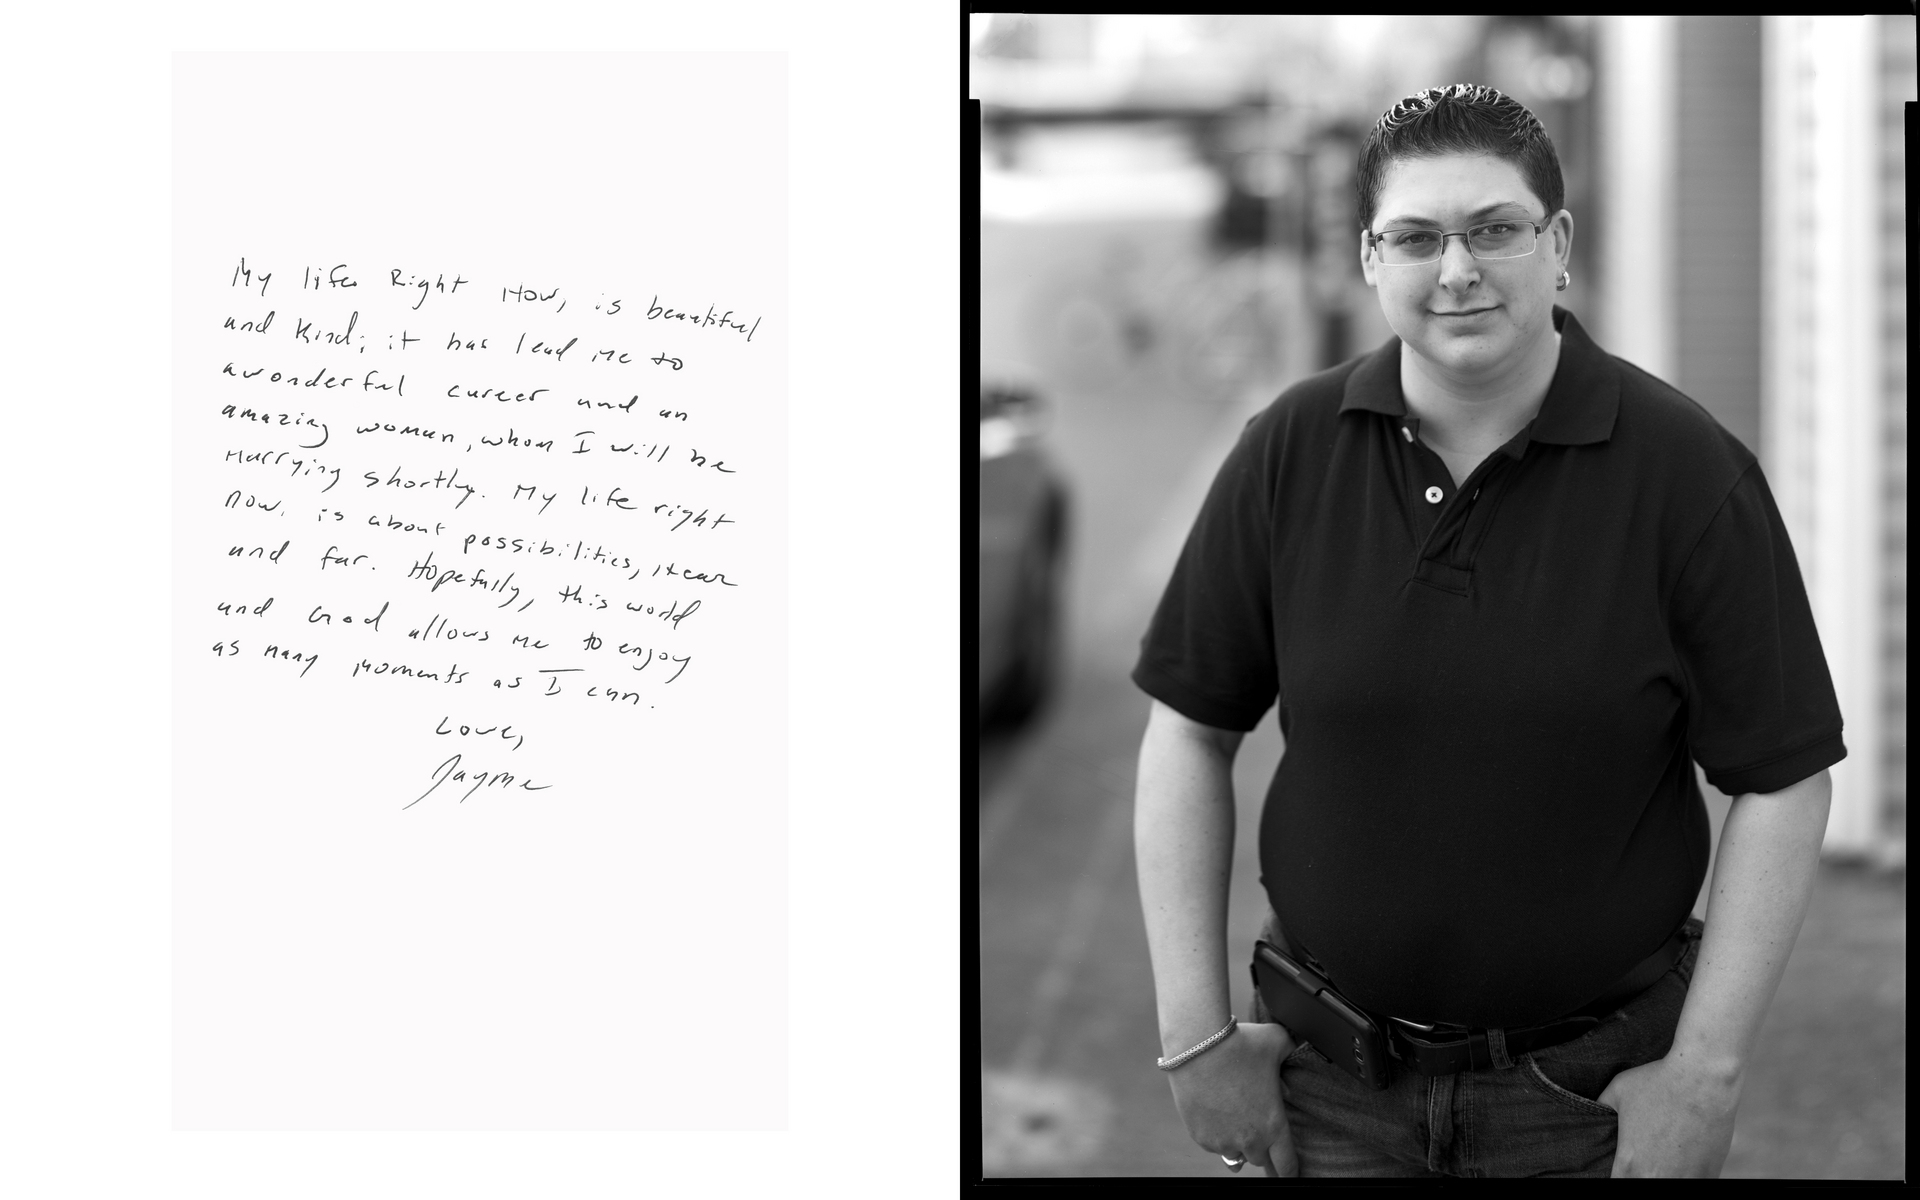 My life Right Now, is beautiful
and Kind; it has lead me to
a wonderful career and an
amazing woman, whom I will be
Marrying shortly. My life right
now, is about possibilities,
and fur. Hopefully, this world
and God allows me to enjoy
as many moments as I can.
Love,
Jayme